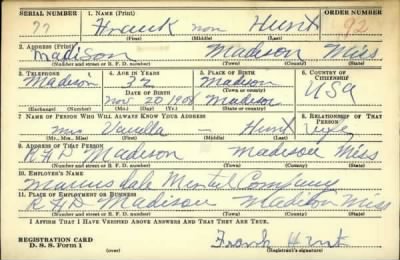 SERIAL NUMBER 1. NAME (Print) ORDER NUMBER
77 Frank non Hunt 92
(First) (Middle) (Last)
2. ADDRESS (Print)
Madison Madison Miss
(Number and street or R. F. D. number) (Town) (County) (State)
3. TELEPHONE 4. AGE IN YEARS 5. PLACE OF BIRTH 6. COUNTRY OF CITIZENSHIP
Madison 32 Madison USA
DATE OF BIRTH
Nov 20 1908 Madison
(Exchange) (Number) (Mo.) (Day) (Yr.) (State or country)
7. NAME OF PERSON WHO WILL ALWAYS KNOW YOUR ADDRESS 8. RELATIONSHIP OF THAT PERSON
Mrs — Hunt
(Mr., Mrs., Miss) (First) (Middle) (Last)
9. ADDRESS OF THAT PERSON
RFD Madison Madison Miss
(Number and street or R. F. D. number) (Town) (County) (State)
10. EMPLOYER'S NAME
Company
11. PLACE OF EMPLOYMENT OR BUSINESS
RFD Madison Madison Miss
(Number and street or R. F. D. number) (Town) (County) (State)
I AFFIRM THAT I HAVE VERIFIED ABOVE ANSWERS AND THAT THEY ARE TRUE.
REGISTRATION CARD
D. S. S. Form 1 (over) Frank Hunt
(Registrant's signature)